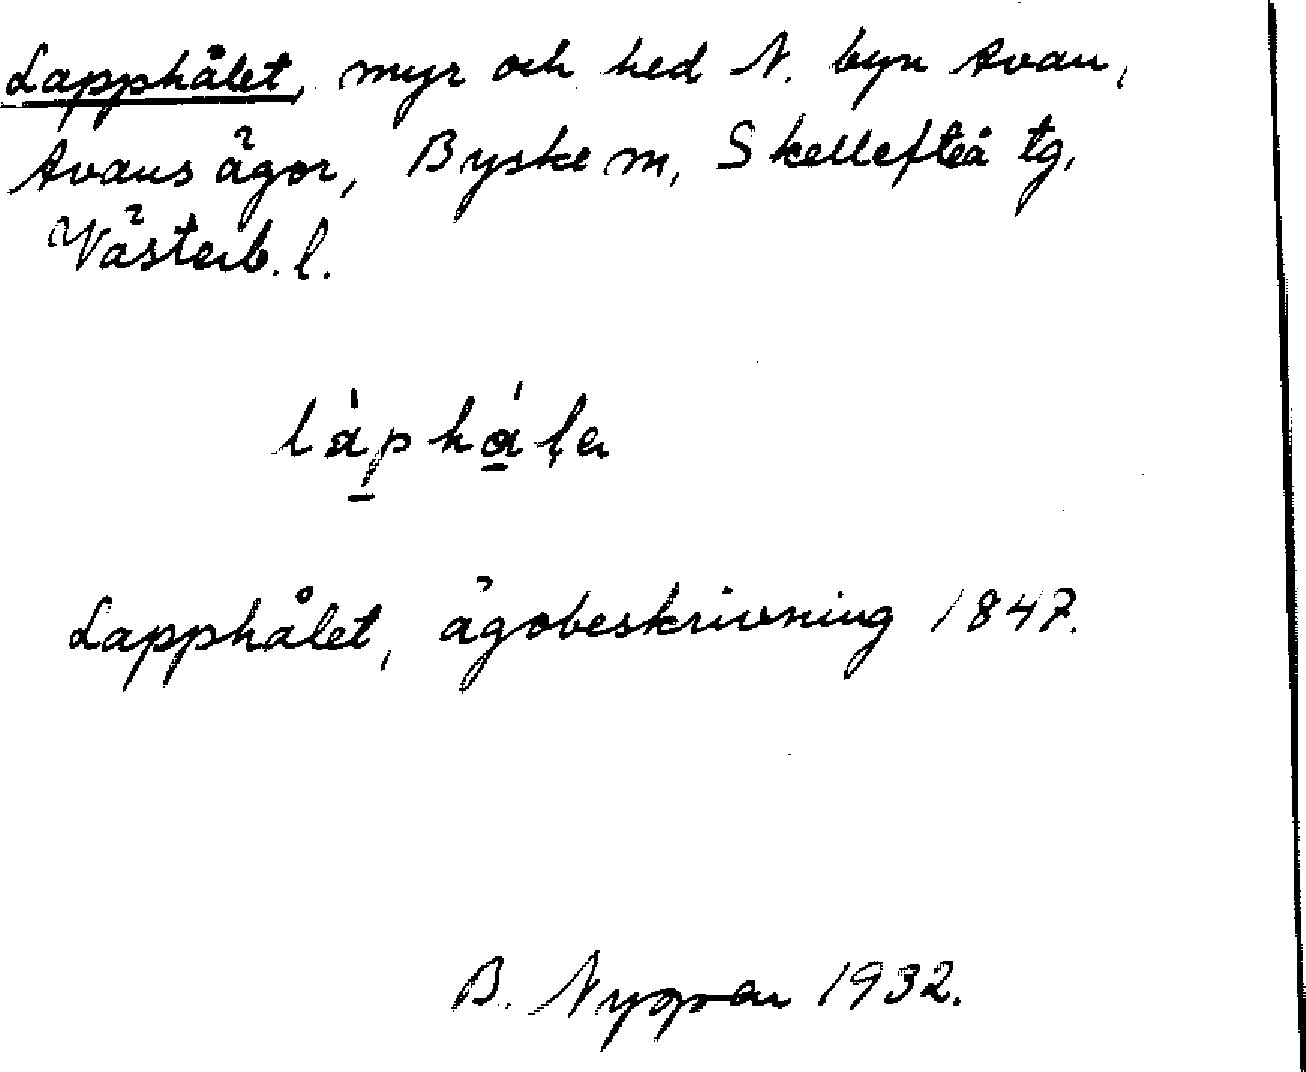 Lapphålet, myr och hed N. byn Avan,
Avans ägor, Byske sn, Skellefteå tg,
Västerb. l.
Lapphålet, ägobeskrivning 1847.
B. 1932.